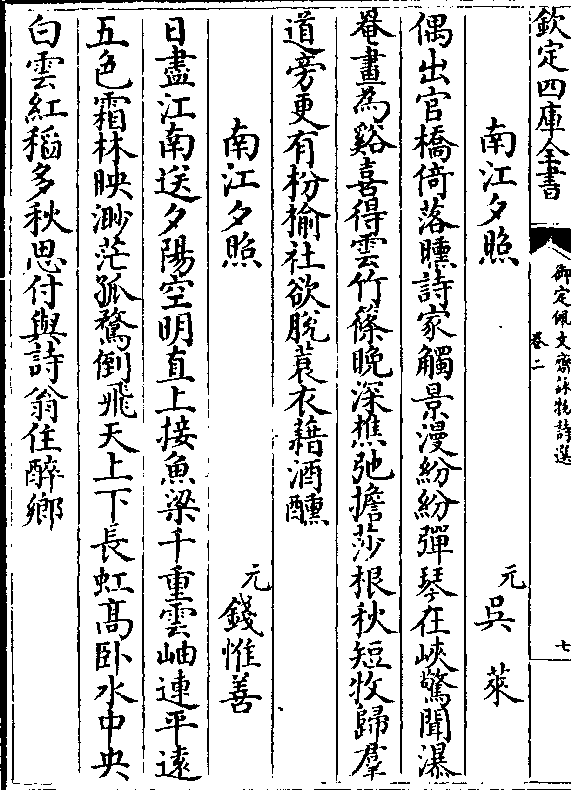 欽定四庫全書
御定佩文齋詠物詩選
卷二
七
南江夕照
元吳萊
偶出官橋倚落曛詩家觸景漫紛紛彈琴在峽驚聞瀑
罨畫為谿喜得雲竹篠晚深樵弛擔莎根秋短牧歸羣
道旁更有枌榆社欲脫蓑衣藉酒醺
南江夕照
元錢惟善
日盡江南送夕陽空明直上接魚梁千重雲岫連平遠
五色霜林映渺茫孤鶩倒飛天上下長虹髙卧水中央
白雲紅稻多秋思付與詩翁住醉鄉